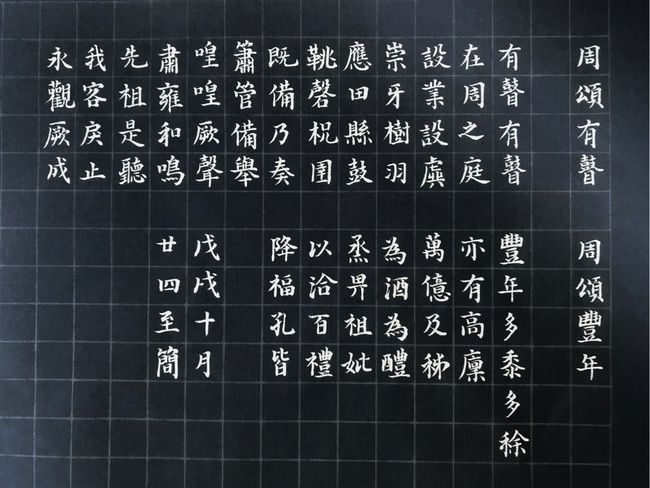 周頌有瞽
有瞽有瞽
在周之庭
設業設虡
崇牙樹羽
應田縣鼓
鞉磬柷圉
既備乃奏
簫管備舉
喤喤厥聲
肅雍和鳴
先祖是聽
我客戾止
永觀厥成
周頌豐年
豐年多黍多稌
亦有高廩
萬億及秭
為酒為醴
烝畀祖妣
以洽百禮
降福孔皆
戊戌十月
廿四至簡